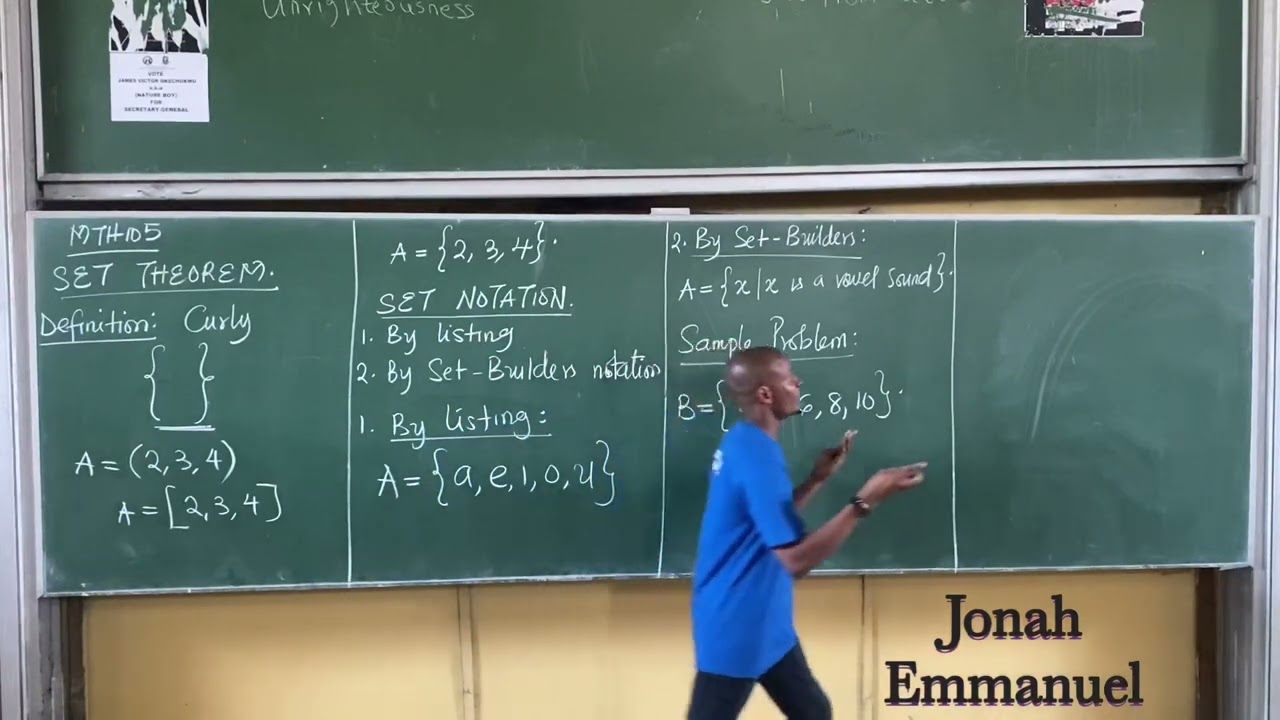 Unrighteousness
VOTE
JAMES VICTOR OKECHUKWU
a.k.a
(NATURE BOY)
FOR
SECRETARY GENERAL
MTH105
SET THEOREM.
Definition: Curly
{ }
A = (2, 3, 4)
A = [2, 3, 4]
A = {2, 3, 4}.
SET NOTATION.
1. By listing
2. By Set-Builders notation
1. By listing:
A = {a, e, i, o, u}
2. By Set-Builders:
A = {x | x is a vowel sound}.
Sample Problem:
B = { 6, 8, 10}.
Jonah
Emmanuel